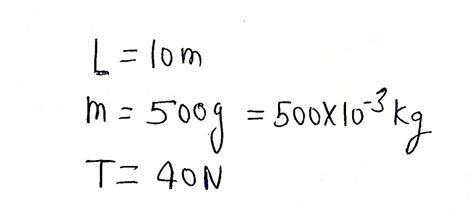 L = 10m
m = 500g = 500X10⁻³ kg
T = 40N